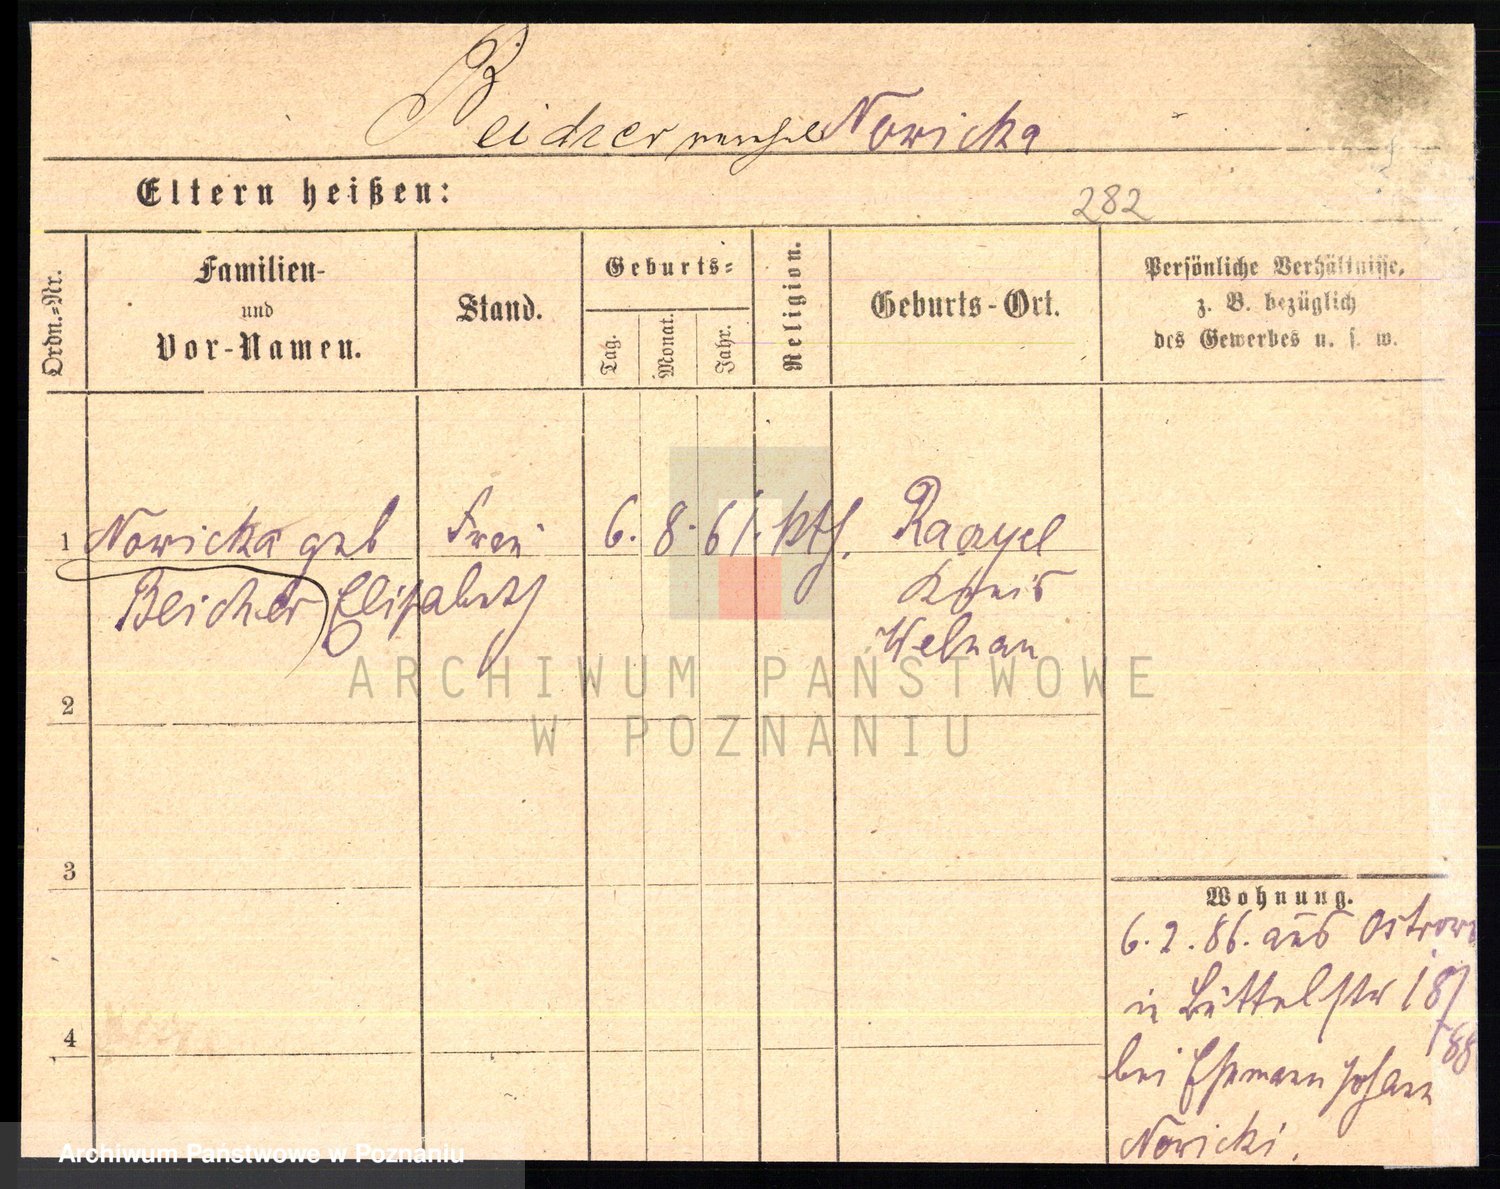 Beicher verehel Nowicka
Eltern heißen:
282
Ordn.-Nr.
Familien-
und
Vor-Namen.
Stand.
Geburts-
Tag.
Monat.
Jahr.
Religion.
Geburts-Ort.
Persönliche Verhältnisse,
z. B. bezüglich
des Gewerbes u. s. w.
1 Nowicka geb Frau 6. 8. 61. kth.
Beicher Elisabeth
Kreis
Welnau
2
3
4
Wohnung.
6. 2. 86. aus Ostrowo
in Büttelstr 18/
88
bei Ehemann Johann
Nowicki.
ARCHIWUM PAŃSTWOWE
W POZNANIU
Archiwum Państwowe w Poznaniu